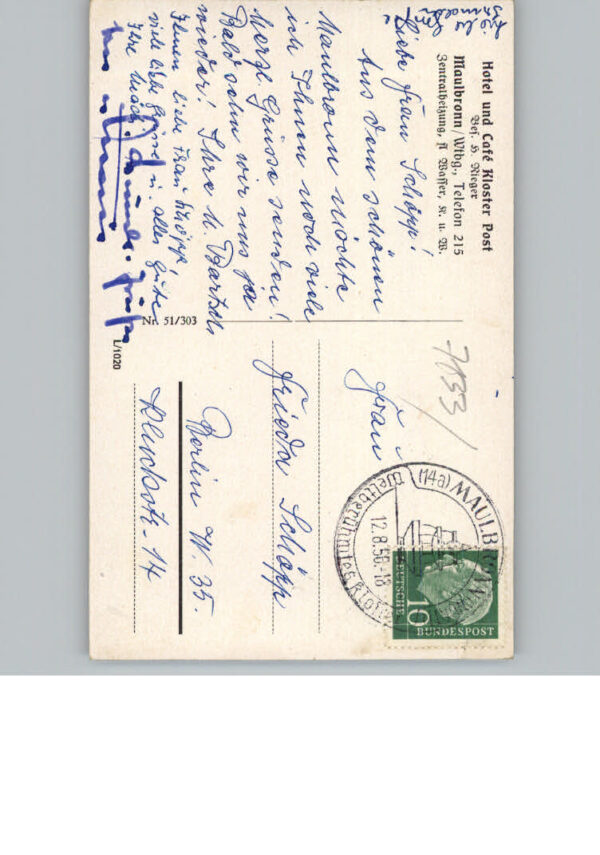 Hotel und Café Kloster Post
Bes. H. Rieger
Maulbronn/Wtbg., Telefon 215
Zentralheizung, fl. Wasser, K. u. W.
Liebe Frau Schöpp!
Aus dem schönen
Maulbronn möchte
ich Ihnen noch viele
Herzl. Grüsse senden!
Bald sehn wir uns ja
wieder! Ihre M. Bartsch
Ihnen, liebe Frau Schöpp,
viele liebe Grüsse u. alles Gute
Ihre
Nr. 51/303
L/1020
7133
Frau
Frieda Schöpp
Berlin W. 35.
14
(14a) MAULBRONN
12.8.56-18
DEUTSCHE
BUNDESPOST
10